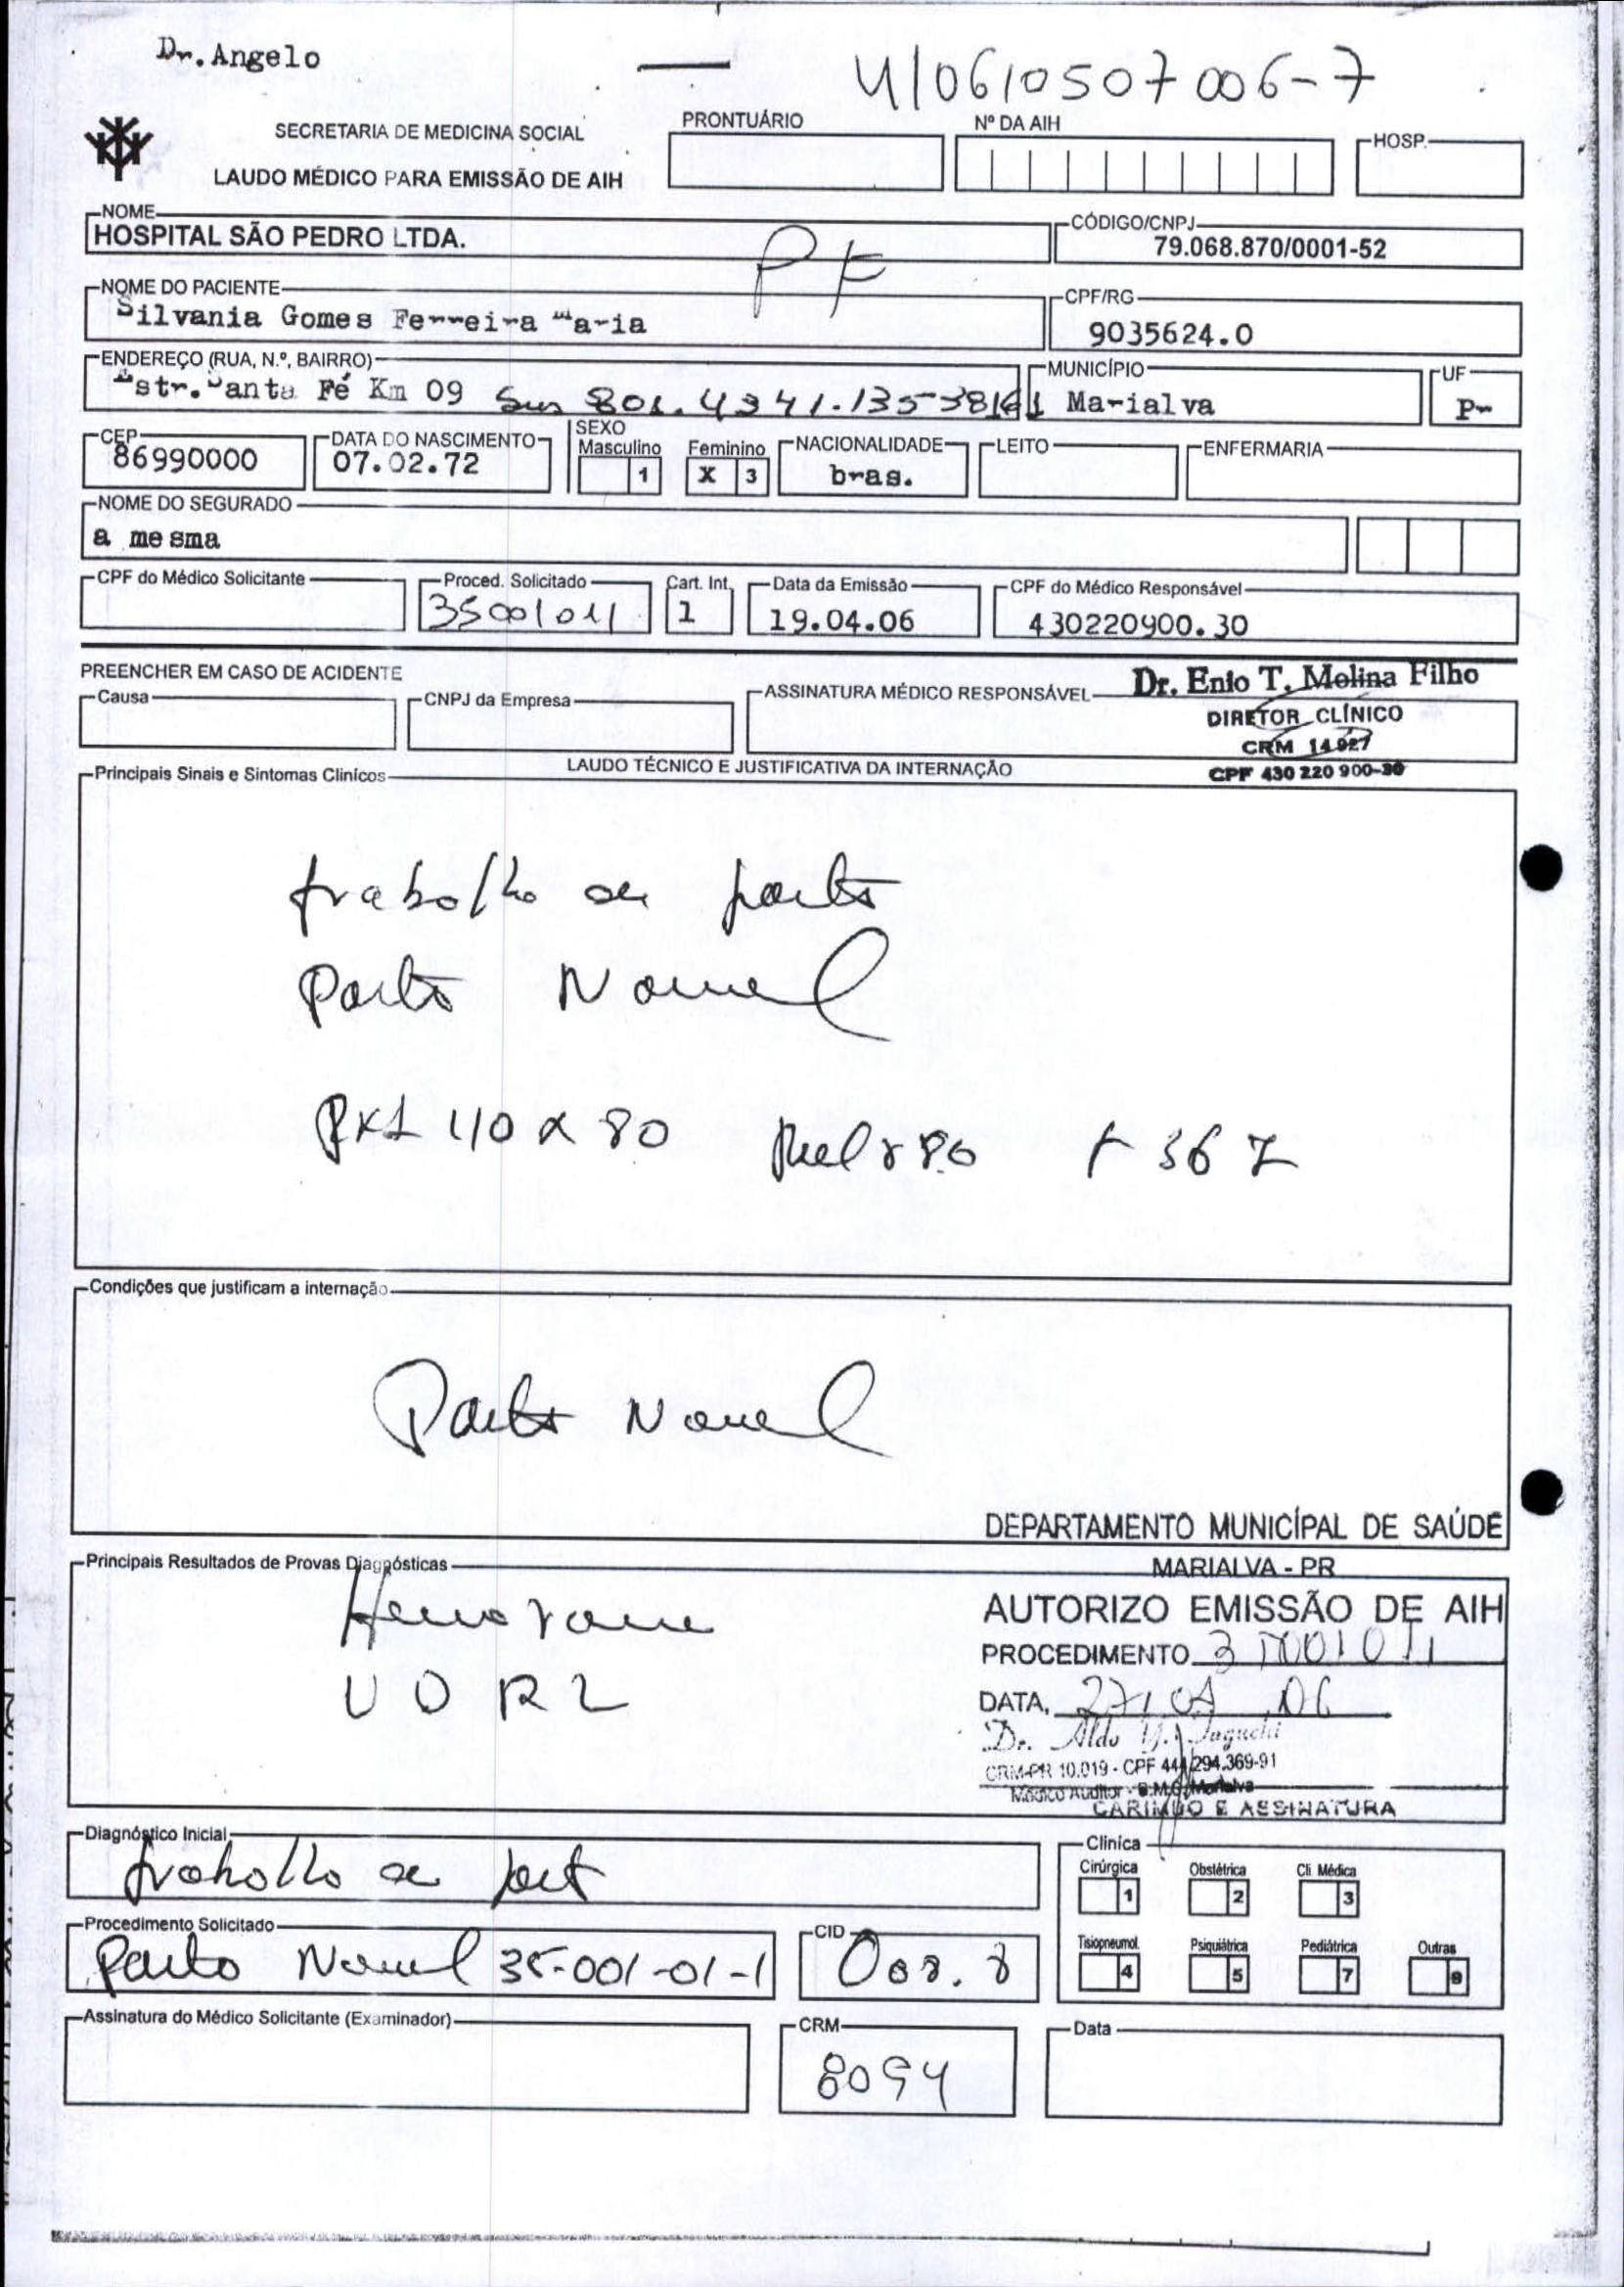 Dr. Angelo
410610507006-7
SECRETARIA DE MEDICINA SOCIAL
LAUDO MÉDICO PARA EMISSÃO DE AIH
PRONTUÁRIO
Nº DA AIH
HOSP.
NOME
HOSPITAL SÃO PEDRO LTDA.
CÓDIGO/CNPJ
79.068.870/0001-52
NOME DO PACIENTE
Silvania Gomes Ferreira Maria
CPF/RG
9035624.0
ENDEREÇO (RUA, N.º, BAIRRO)
Estr. Santa Fé Km 09
MUNICÍPIO
Marialva
UF
Pr
CEP
86990000
DATA DO NASCIMENTO
07.02.72
SEXO
Masculino 1
Feminino X 3
NACIONALIDADE
bras.
LEITO
ENFERMARIA
NOME DO SEGURADO
a mesma
CPF do Médico Solicitante
Proced. Solicitado
35001011
Cart. Int.
1
Data da Emissão
19.04.06
CPF do Médico Responsável
430220900.30
PREENCHER EM CASO DE ACIDENTE
Causa
CNPJ da Empresa
ASSINATURA MÉDICO RESPONSÁVEL
Dr. Enio T. Molina Filho
DIRETOR CLÍNICO
CRM 14.927
CPF 430 220 900-30
LAUDO TÉCNICO E JUSTIFICATIVA DA INTERNAÇÃO
Principais Sinais e Sintomas Clinícos
trabalho de parto
Parto Normal
110 x 80
36
Condições que justificam a internação
Parto Normal
DEPARTAMENTO MUNICÍPAL DE SAÚDE
MARIALVA - PR
Principais Resultados de Provas Diagnósticas
VDRL
AUTORIZO EMISSÃO DE AIH
PROCEDIMENTO 35001011
DATA,
Dr. Aldo Y. Taguchi
CRM-PR 10.019 - CPF 444.294.369-91
Médico Auditor - Marialva
CARIMBO E ASSINATURA
Diagnóstico Inicial
trabalho de part
Clínica
Cirúrgica 1
Obstétrica 2
Cli. Médica 3
Tisiopneumol. 4
Psiquiátrica 5
Pediátrica 7
Outras 9
Procedimento Solicitado
Parto Normal 35-001-01-1
CID
O08.8
Assinatura do Médico Solicitante (Examinador)
CRM
8094
Data